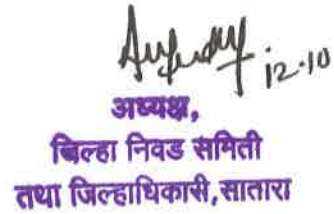 12.10
अध्यक्ष,
जिल्हा निवड समिती
तथा जिल्हाधिकारी, सातारा